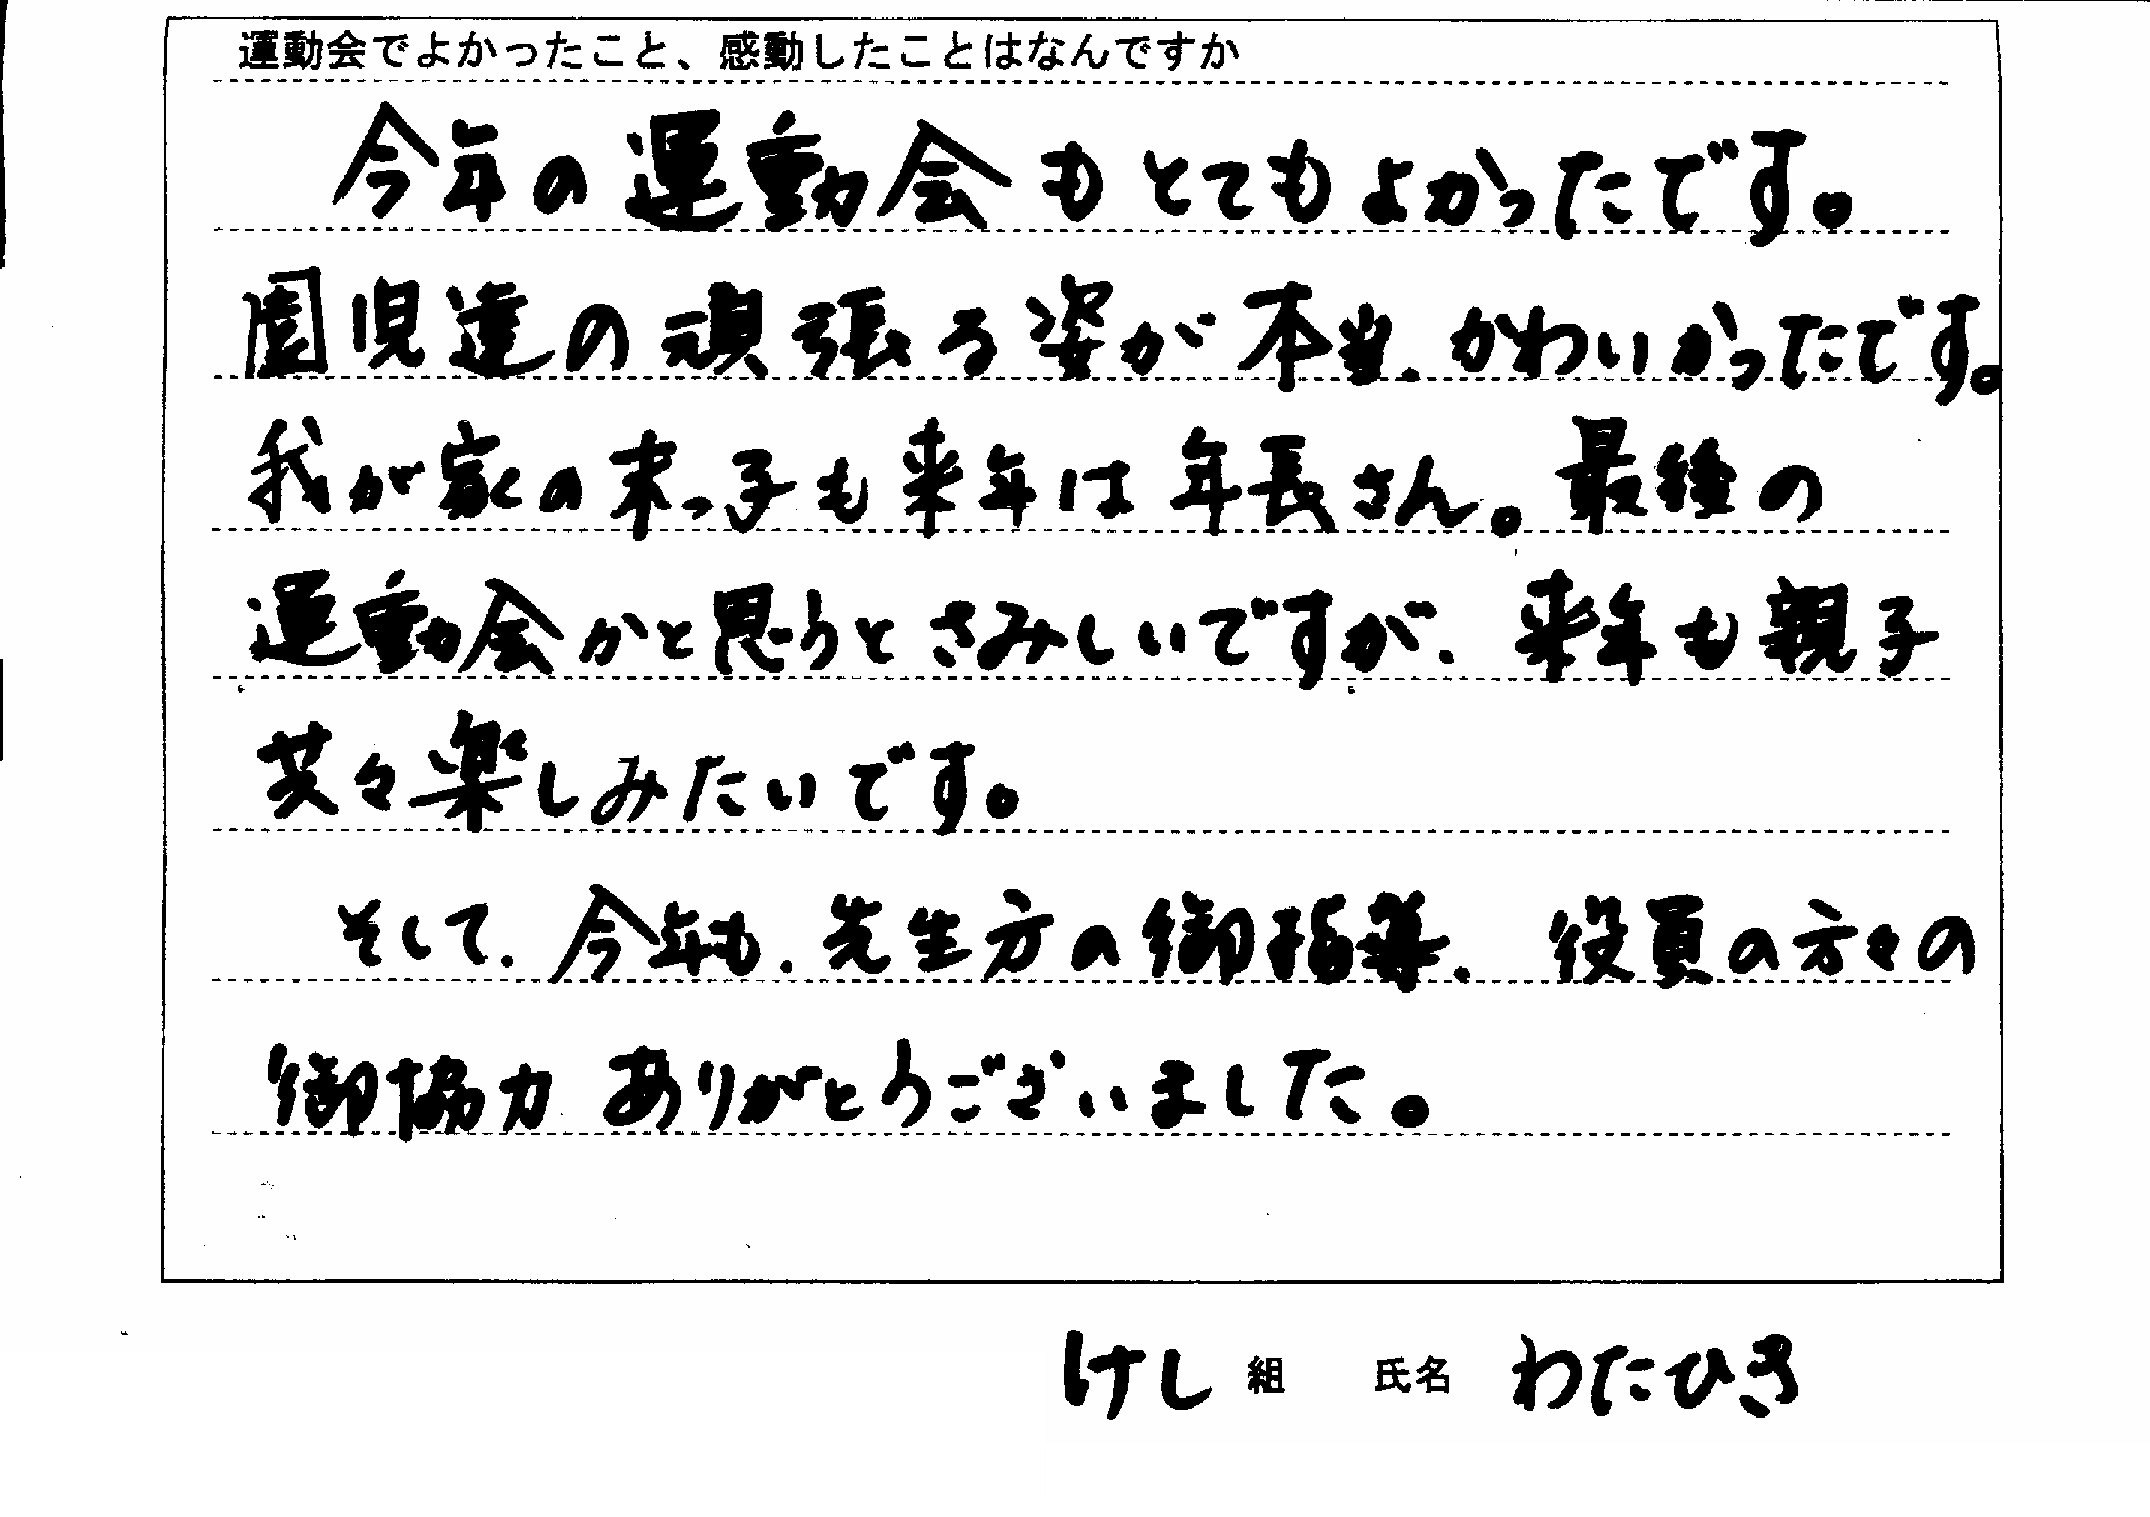 運動会でよかったこと、感動したことはなんですか
今年の運動会もとてもよかったです。
園児達の頑張る姿が本当、かわいかったです。
我が家の末っ子も来年は年長さん。最後の
運動会かと思うとさみしいですが、来年も親子
共々楽しみたいです。
そして、今年も、先生方の御指導、役員の方々の
御協力ありがとうございました。
けし組 氏名 わたひき